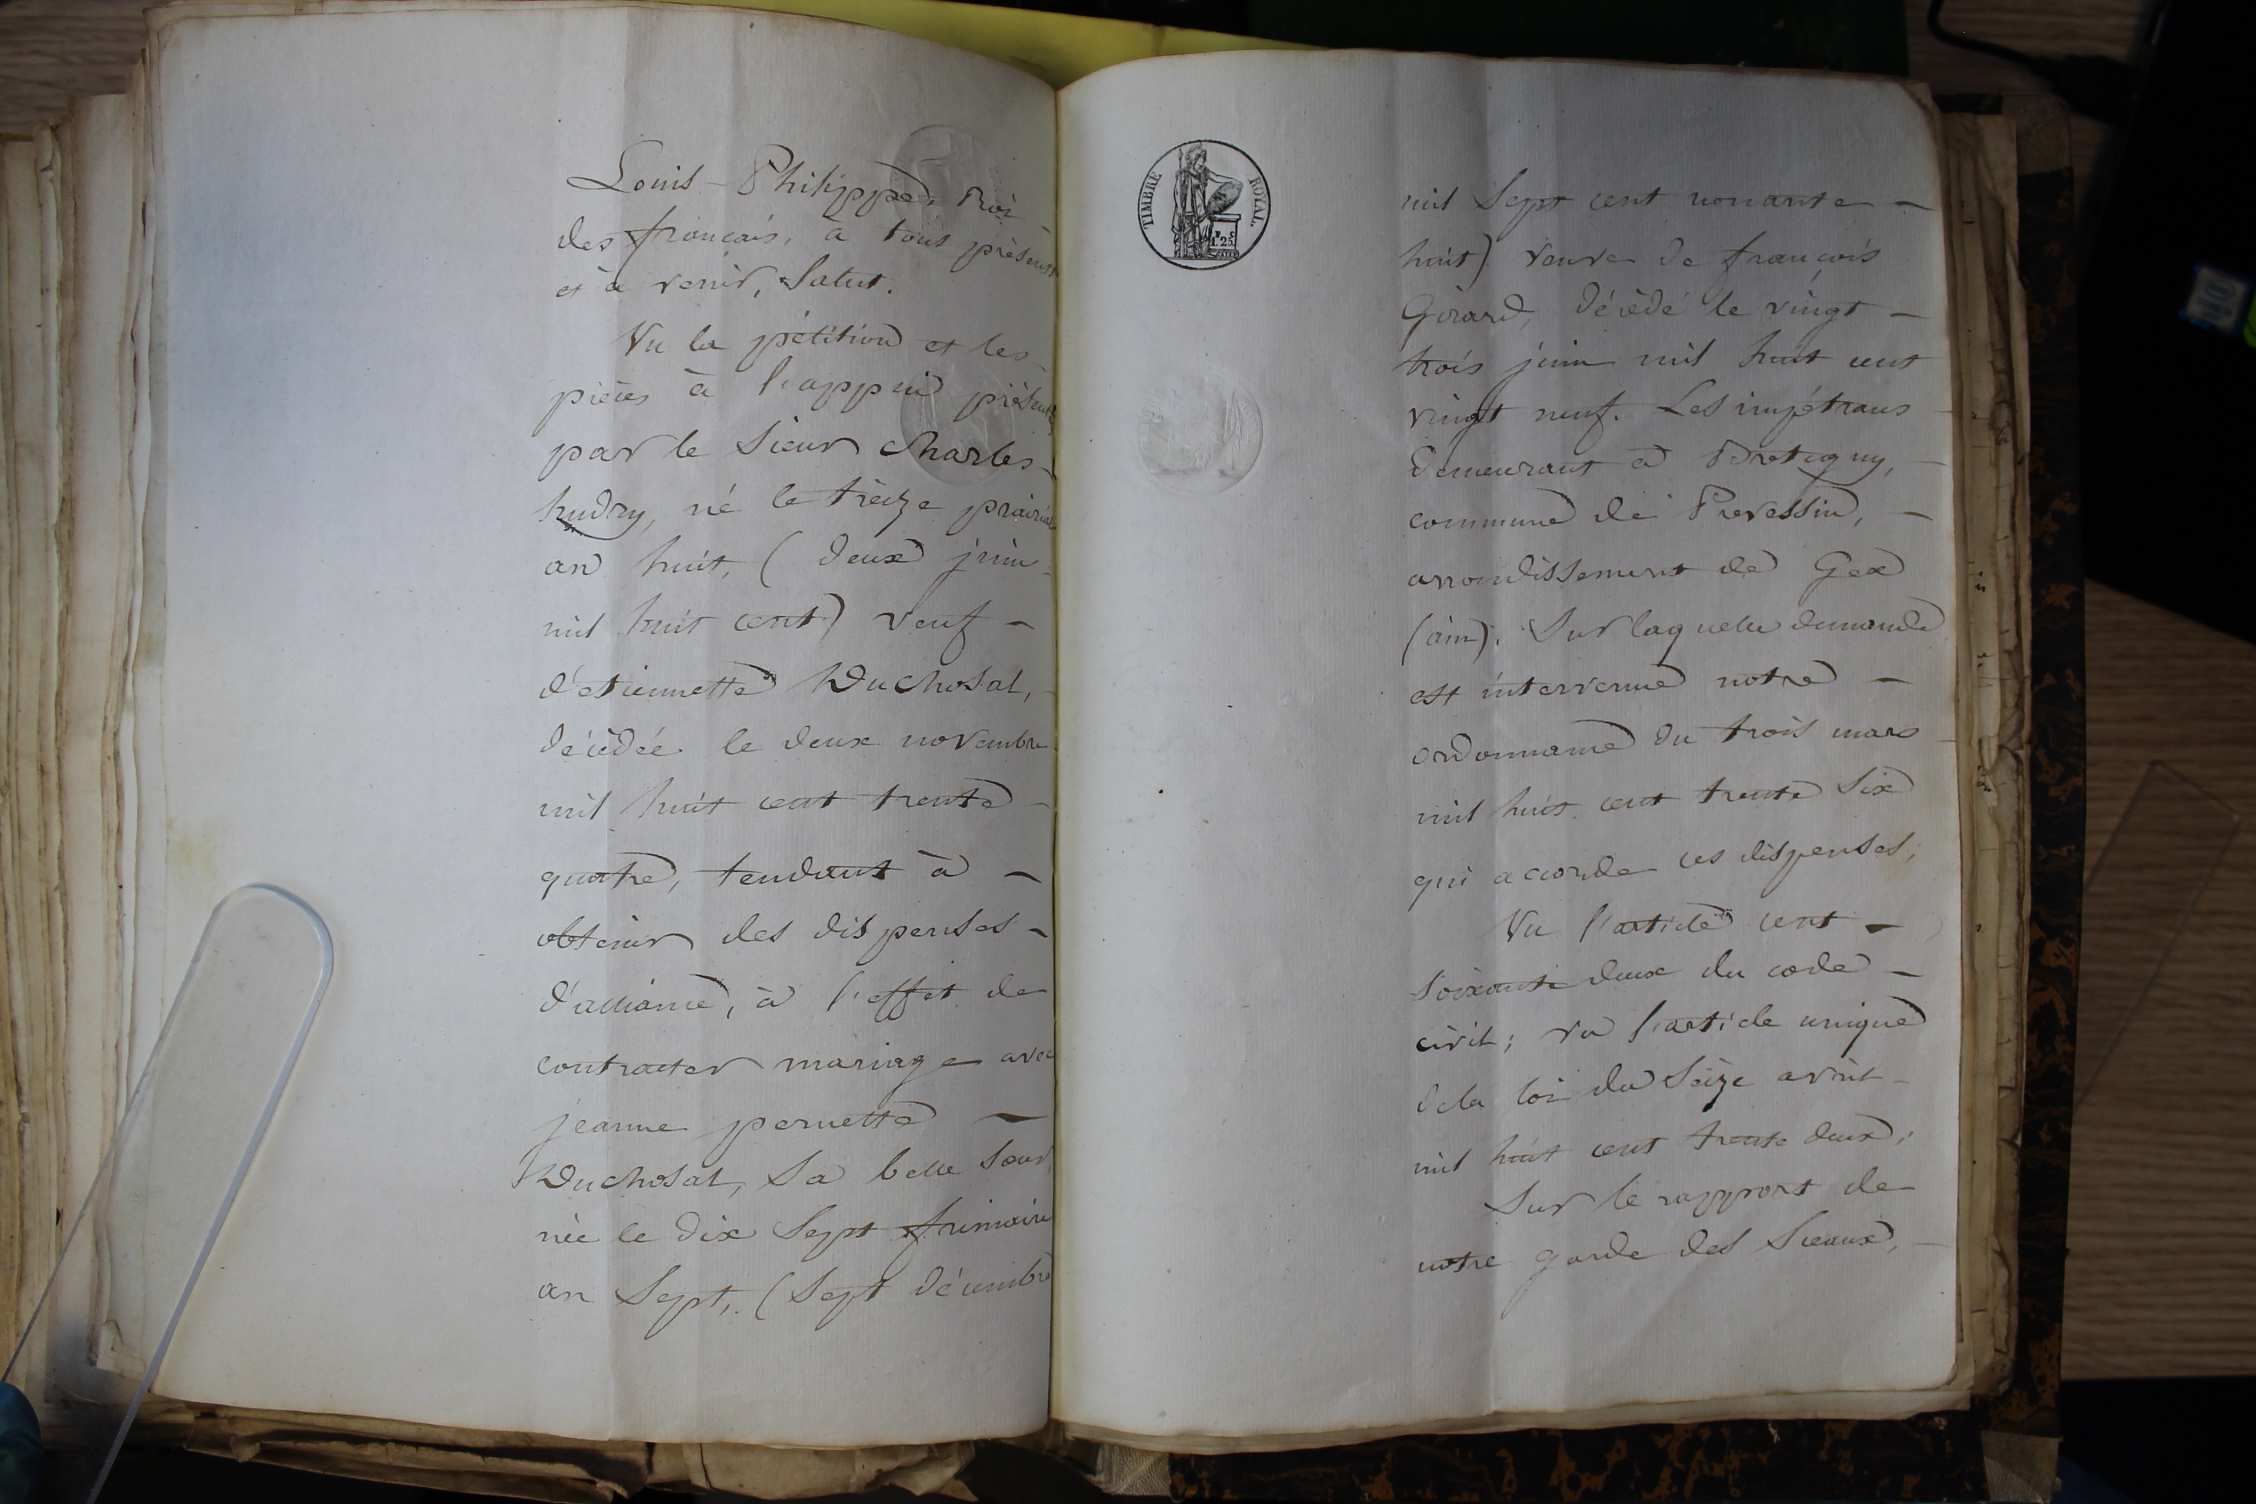 Louis-Philippe, Roi
des français, à tous présents
et à venir, Salut.
Vu la pétition et les
pièces à l'appui présentées
par le Sieur Charles
hudry, né le treize prairial
an huit, (deux juin
mil huit cent) veuf -
d'etiennette Duchosal,
décédée le deux novembre
mil huit cent trente
quatre, tendant à -
obtenir des dispenses -
d'alliance, à l'effet de
contracter mariage avec
jeanne pernette -
Duchosal, Sa belle Sœur,
née le dix Sept frimaire
an Sept, (Sept décembre
TIMBRE ROYAL.
1F.25C.
mil Sept cent nonante -
huit) veuve de françois
Girard, décédé le vingt -
trois juin mil huit cent
vingt neuf. Les impétrans
demeurant à Bretigny, -
commune de Prevessin, -
arrondissement de Gex
(ain). Sur laquelle demande
est intervenue notre -
ordonnance du trois mars
mil huit cent trente Six
qui accorde ces dispenses;
Vu l'article cent -
Soixante deux du code -
civil; vu l'article unique
dela loi du Seize avril -
mil huit cent trente deux;
Sur le rapport de
notre garde des Sceaux, -